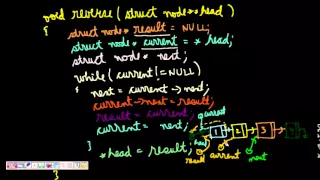 void reverse(struct node**head)
{
struct node* result = NULL;
struct node* current = *head;
struct node* next;
while(current!=NULL)
{
next = current→next;
current→next = result;
result = current;
current = next;
}
*head = result;
}
current
1 2 3
head
result current next